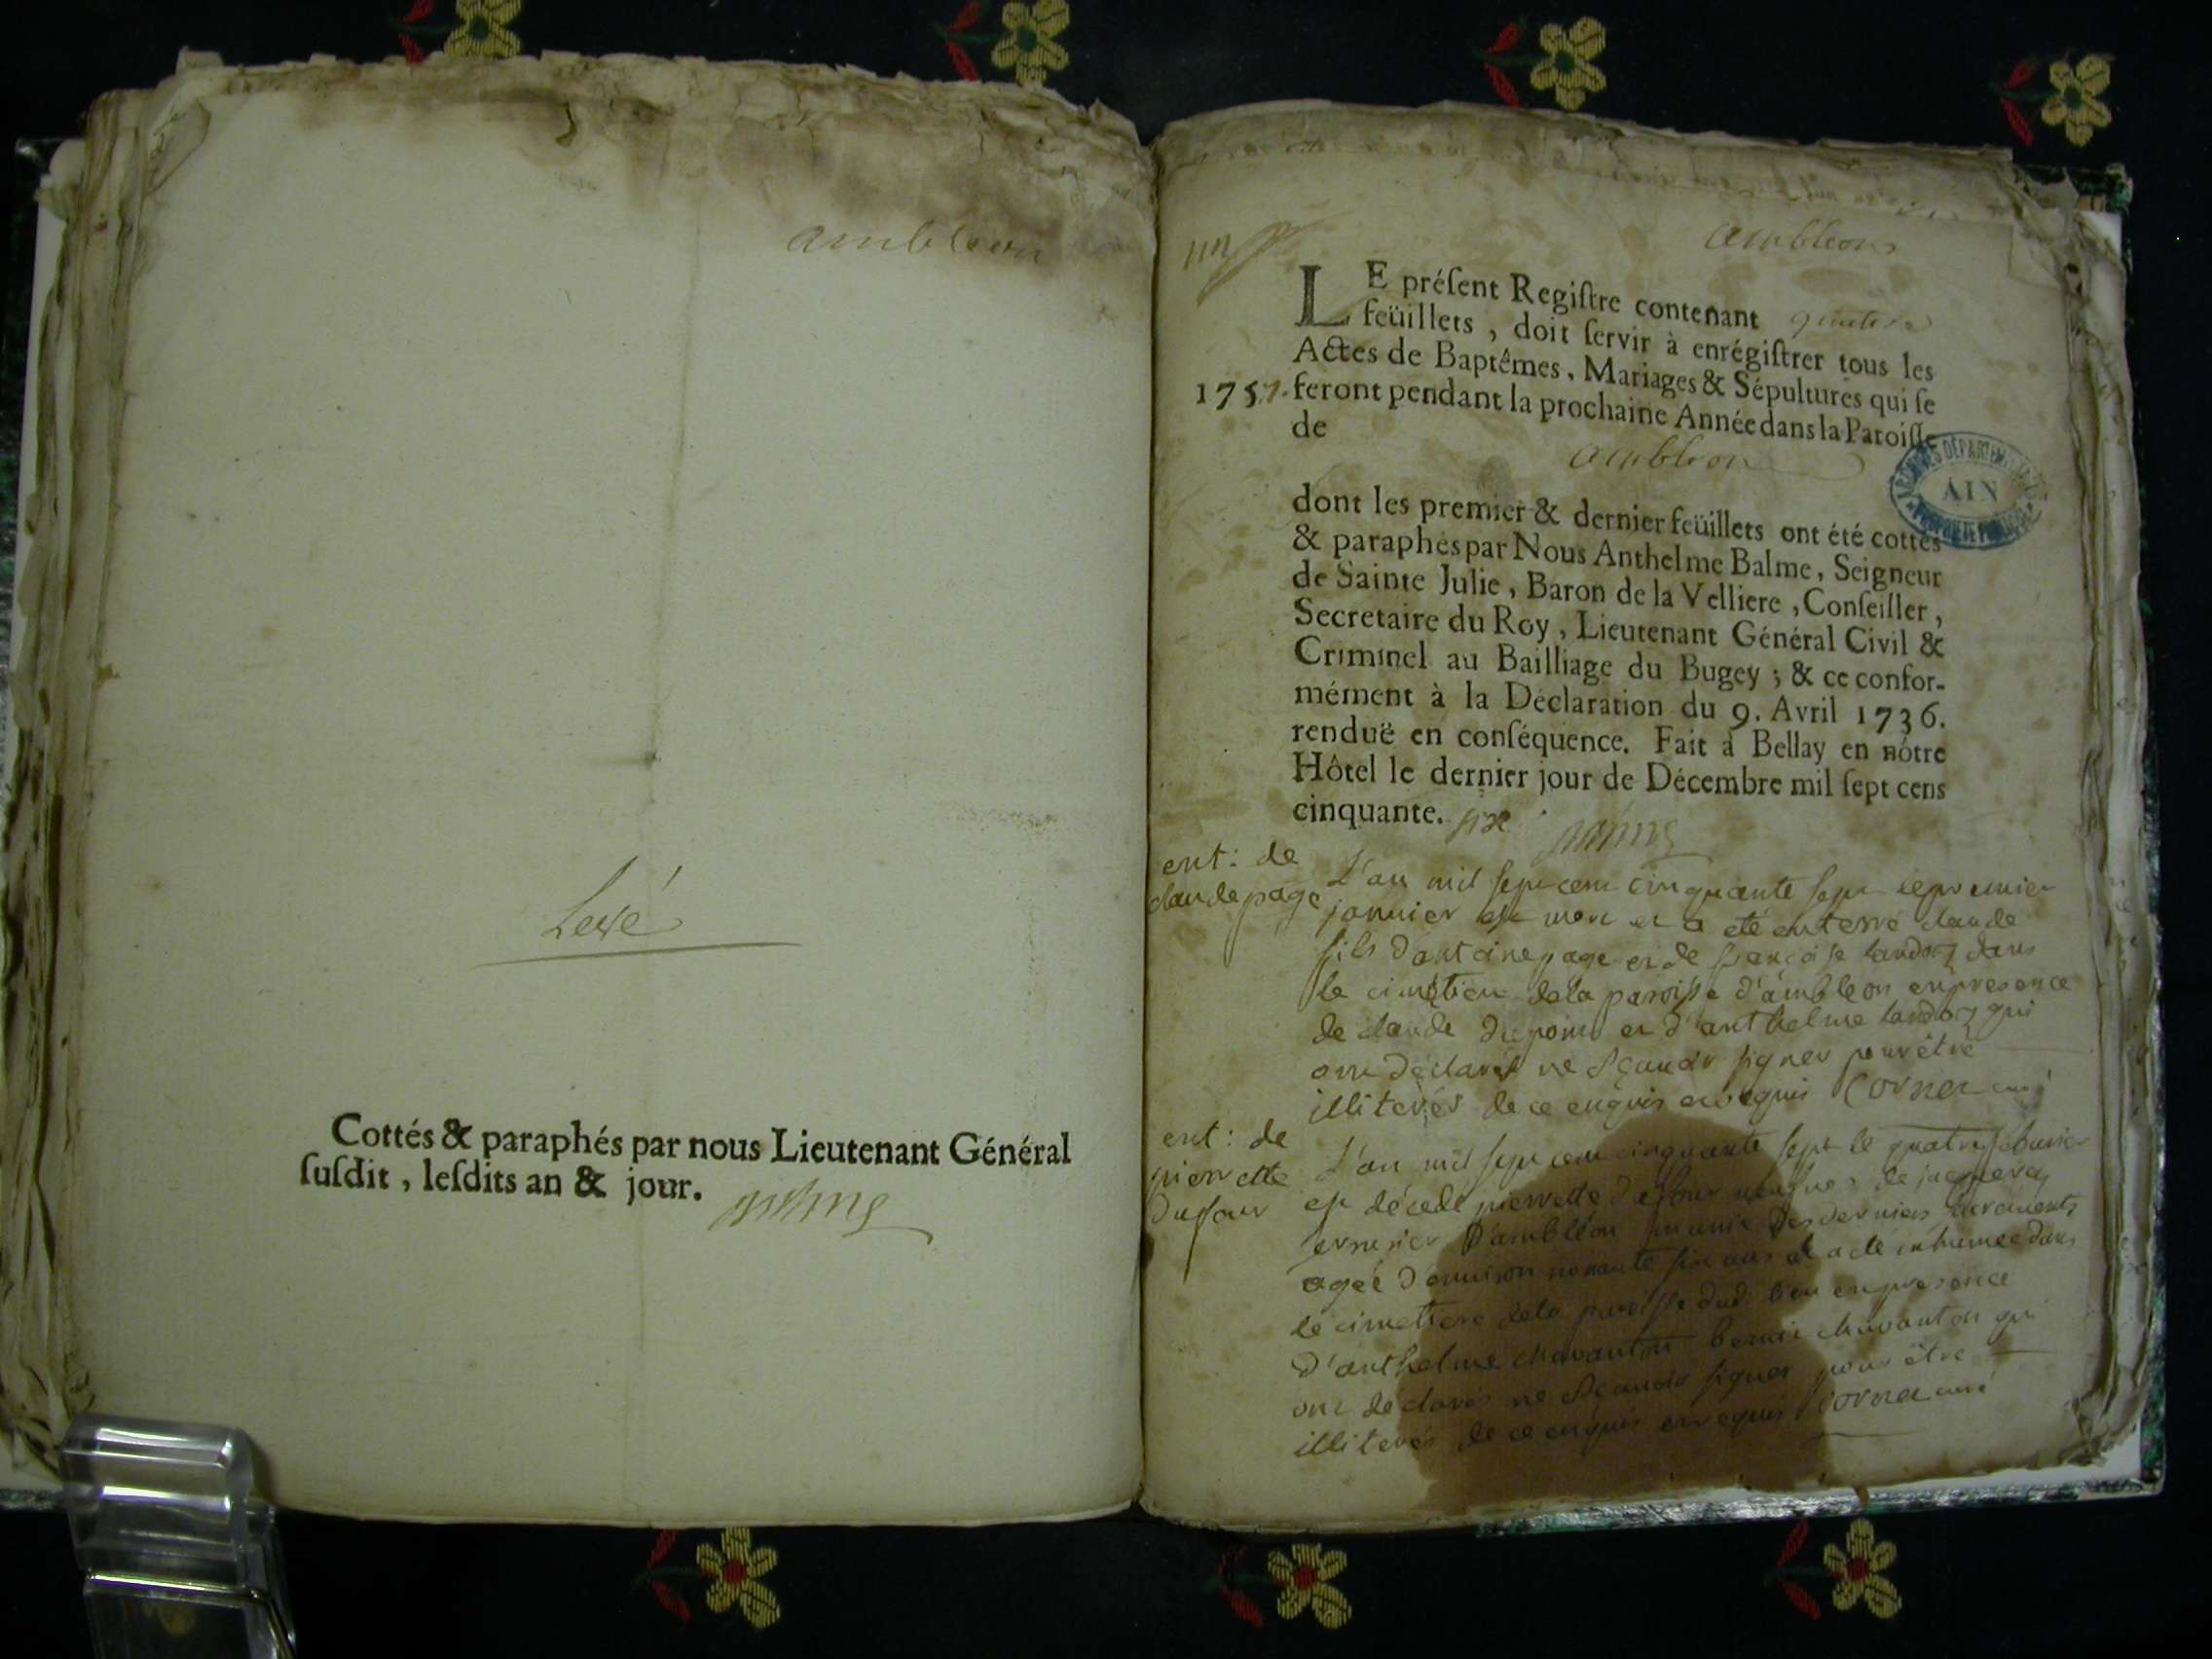 ambleon
Levé
Cottés & paraphés par nous Lieutenant Général
ſuſdit, leſdits an & jour.
ambleon
LE préſent Regiſtre contenant quatre
feüillets, doit ſervir à enrégiſtrer tous les
Actes de Baptêmes, Mariages & Sépultures qui ſe
1757. feront pendant la prochaine Année dans la Paroiſſe
de
ambleon
ARCHIVES DÉPARTEMENTALES
AIN
PROPRIÉTÉ PUBLIQUE
dont les premier & dernier feüillets ont été cottés
& paraphés par Nous Anthelme Balme, Seigneur
de Sainte Julie, Baron de la Velliere, Conſeiller,
Secretaire du Roy, Lieutenant Général Civil &
Criminel au Bailliage du Bugey; & ce confor-
mément à la Déclaration du 9. Avril 1736.
renduë en conſéquence. Fait à Bellay en nôtre
Hôtel le dernier jour de Décembre mil ſept cens
cinquante. six
ent: de
claude page
L'an mil sept cent cinquante sept le premier
janvier est mort et a eté enterré claude
fils d'antoine page et de françoise landoz dans
le cimetiere de la paroisse d'ambleon en presence
de claude dupont et d'anthelme landoz qui
ont declarés ne sçauoir signer pour être
illiterés de ce enquis et requis Cornet curé
ent: de
pierrette
Dufour
L'an mil sept cent cinquante sept le quatre febvrier
est décedé pierrette dufour de
D'ambléon munie des derniers sacrements
ageé d'environ nonante six ans et a eté inhumeé dans
le cimetiere de la paroisse dud. lieu en presence
d'anthelme chavanton benoit chavanton qui
ont declarés ne sçauoir signer pour être
illiterés de ce enquis et requis Cornet curé